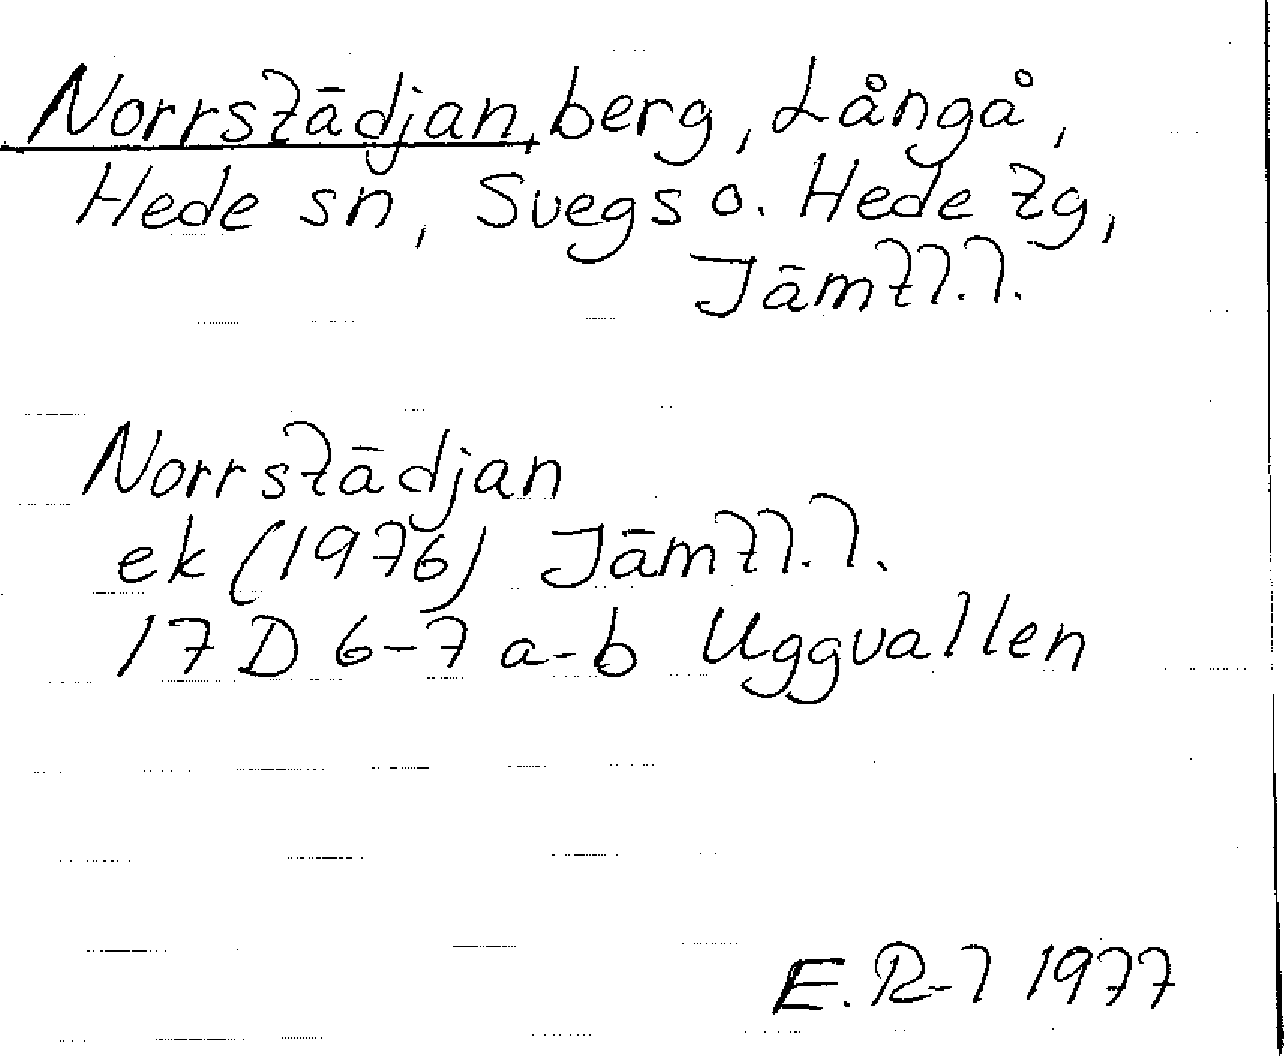 Norrstädjan, berg, Långå,
Hede sn, Svegs o. Hede tg,
Jämtl.l.
Norrstädjan
ek (1976) Jämtl.l.
17 D 6-7 a-b Uggvallen
E. R-l 1977